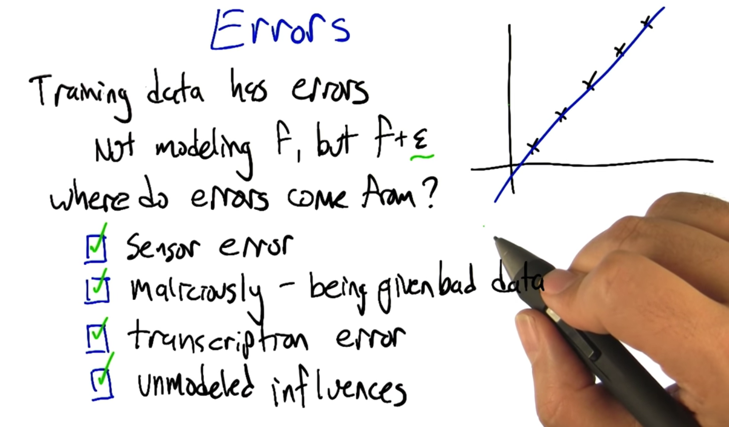 Errors
Training data has errors
Not modeling f, but f+ε
where do errors come from?
sensor error
maliciously - being given bad data
transcription error
unmodeled influences